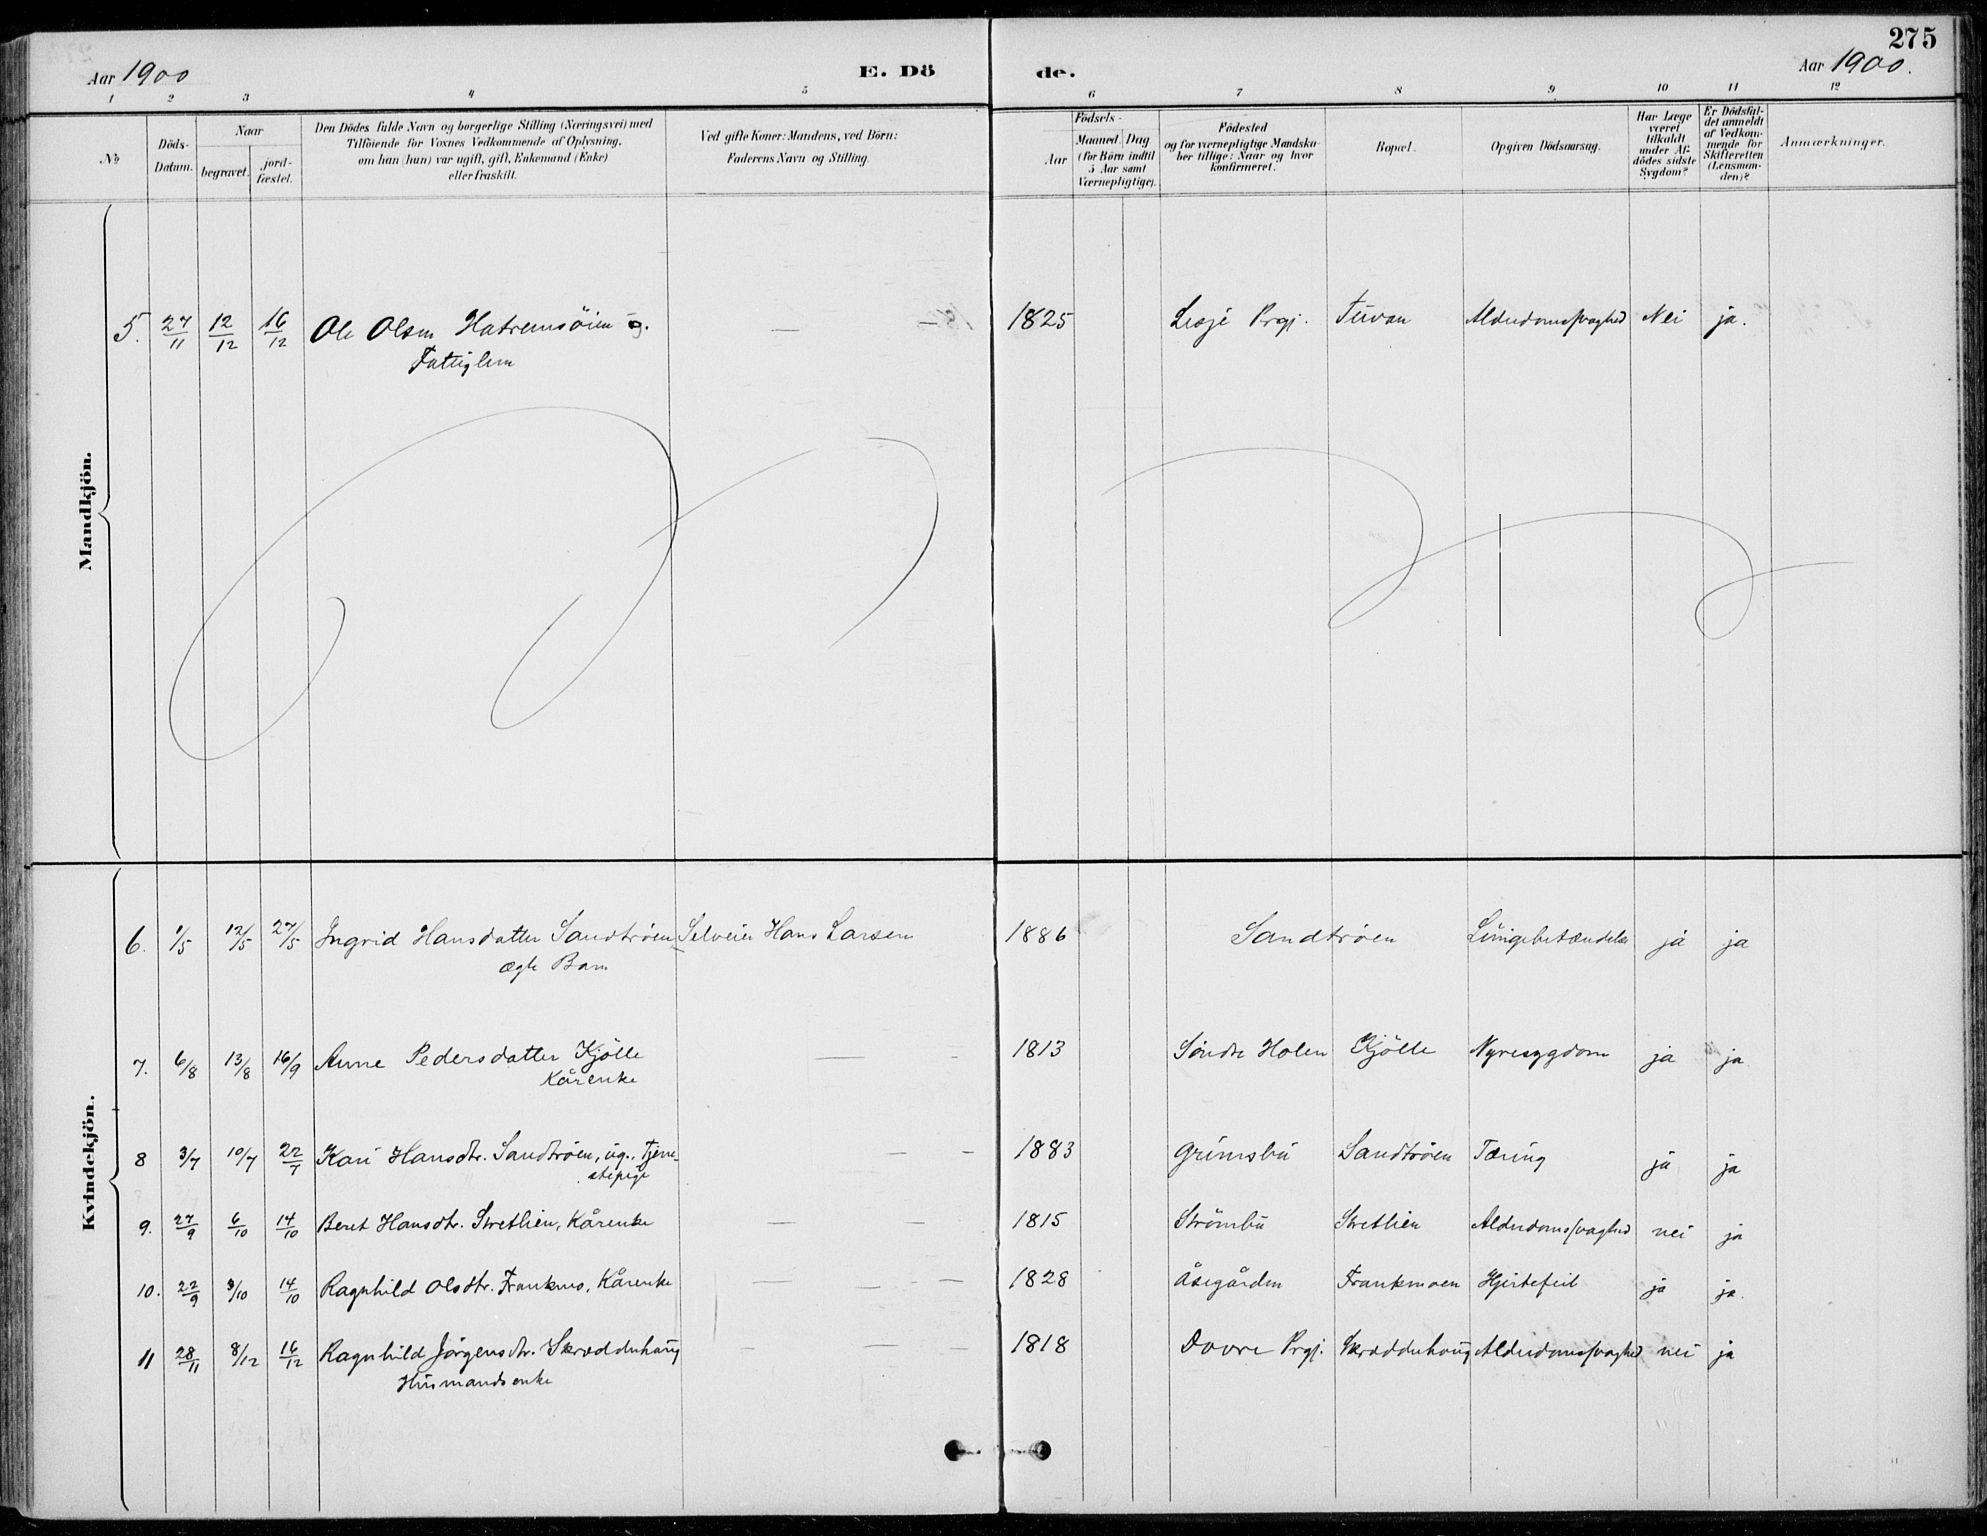 275
Aar 1900
E. Dö
de.
Aar 1900.
1 2 3 4 5 6 7 8 9 10 11 12
No
Döds-
Datum.
Naar
begravet.
jord-
fæstet.
Den Dödes fulde Navn og borgerlige Stilling (Næringsvei) med
Tilföiende for Voxnes Vedkommende af Oplysning,
om han (hun) var ugift, gift, Enkemand (Enke)
eller fraskilt.
Ved gifte Koner: Mandens, ved Börn:
Faderens Navn og Stilling.
Födsels-
Aar
Maaned.
Dag
(for Börn indtil
5 Aar samt
Værnepligtige).
Födested
og for værnepligtige Mandska-
ber tillige: Naar og hvor
konfirmeret.
Bopæl.
Opgiven Dödsaarsag.
Har Læge
været
tilkaldt
under Af-
dödes sidste
Sygdom?
Er Dödsfal-
det anmeldt
af Vedkom-
mende for
Skifteretten
(Lensman-
den)?
Anmærkninger.
Mandkjön.
5. 27/11 12/12 16/12 Ole Olsen Hatremsöien ug. — — 1825 Lesje Prgj. Tuvan Alderdomssvaghed Nei ja.
Fattiglem
Kvindekjön.
6. 1/5 12/5 27/5 Ingrid Hansdatter Sandtröen Selveier Hans Larsen 1886 Sandtröen Lungebetændelse ja ja
ægte Barn
7. 6/8 13/8 16/9 Anne Pedersdatter Kjölle — - 1813 Söndre Holen Kjölle Nyresygdom ja ja
Kårenke
8 3/7 10/7 22/7 Kari Hansdtr. Sandtröen, ug., Tjene- — - 1883 Grimsbu Sandtröen Tæring ja ja
stepige
9. 27/9 6/10 14/10 Beret Hansdtr. Stretlien, Kårenke — — 1815 Strömbu Stretlien Alderdomssvaghed nei ja
10. 22/9 3/10 14/10 Ragnhild Olsdtr. Frankmo, Kårenke — — - 1828 Åsegården Frankmoen Hjertefeil ja ja.
11 28/11 8/12 16/12 Ragnhild Jörgensdtr. Skrædderhaug — — - 1818 Dovre Prgj. Skrædderhaug Alderdomssvaghed nei ja
Husmandsenke